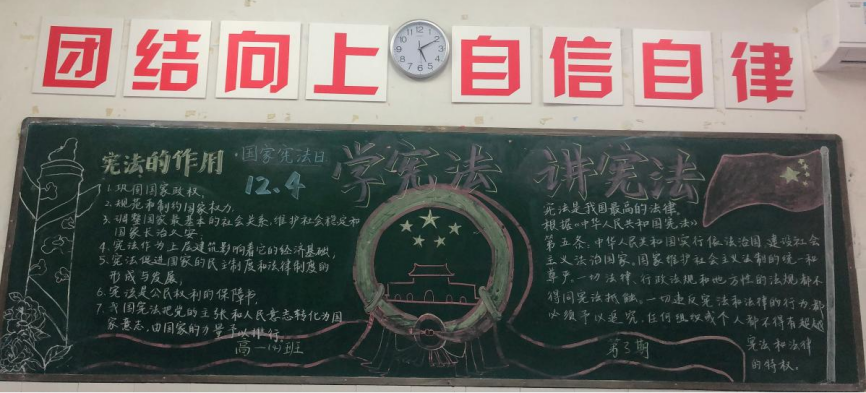 团结向上 自信自律
宪法的作用
1.巩固国家政权,
2.规范和制约国家权力,
3.调整国家最基本的社会关系,维护社会稳定和
国家长治久安,
4.宪法作为上层建筑影响着它的经济基础,
5.宪法促进国家的民主制度和法律制度的
形成与发展,
6.宪法是公民权利的保障书,
7.我国宪法把党的主张和人民意志转化为国
家意志,由国家的力量予以推行.
高一(4)班
·国家宪法日
12.4
学宪法 讲宪法
宪法是我国最高的法律,
根据《中华人民共和国宪法》
第五条,中华人民共和国实行依法治国,建设社会
主义法治国家,国家维护社会主义法制的统一和
尊严.一切法律、行政法规和地方性的法规都不
得同宪法抵触.一切违反宪法和法律的行为,都
必须予以追究,任何组织或个人都不得有超越
宪法和法律
的特权.
第3期